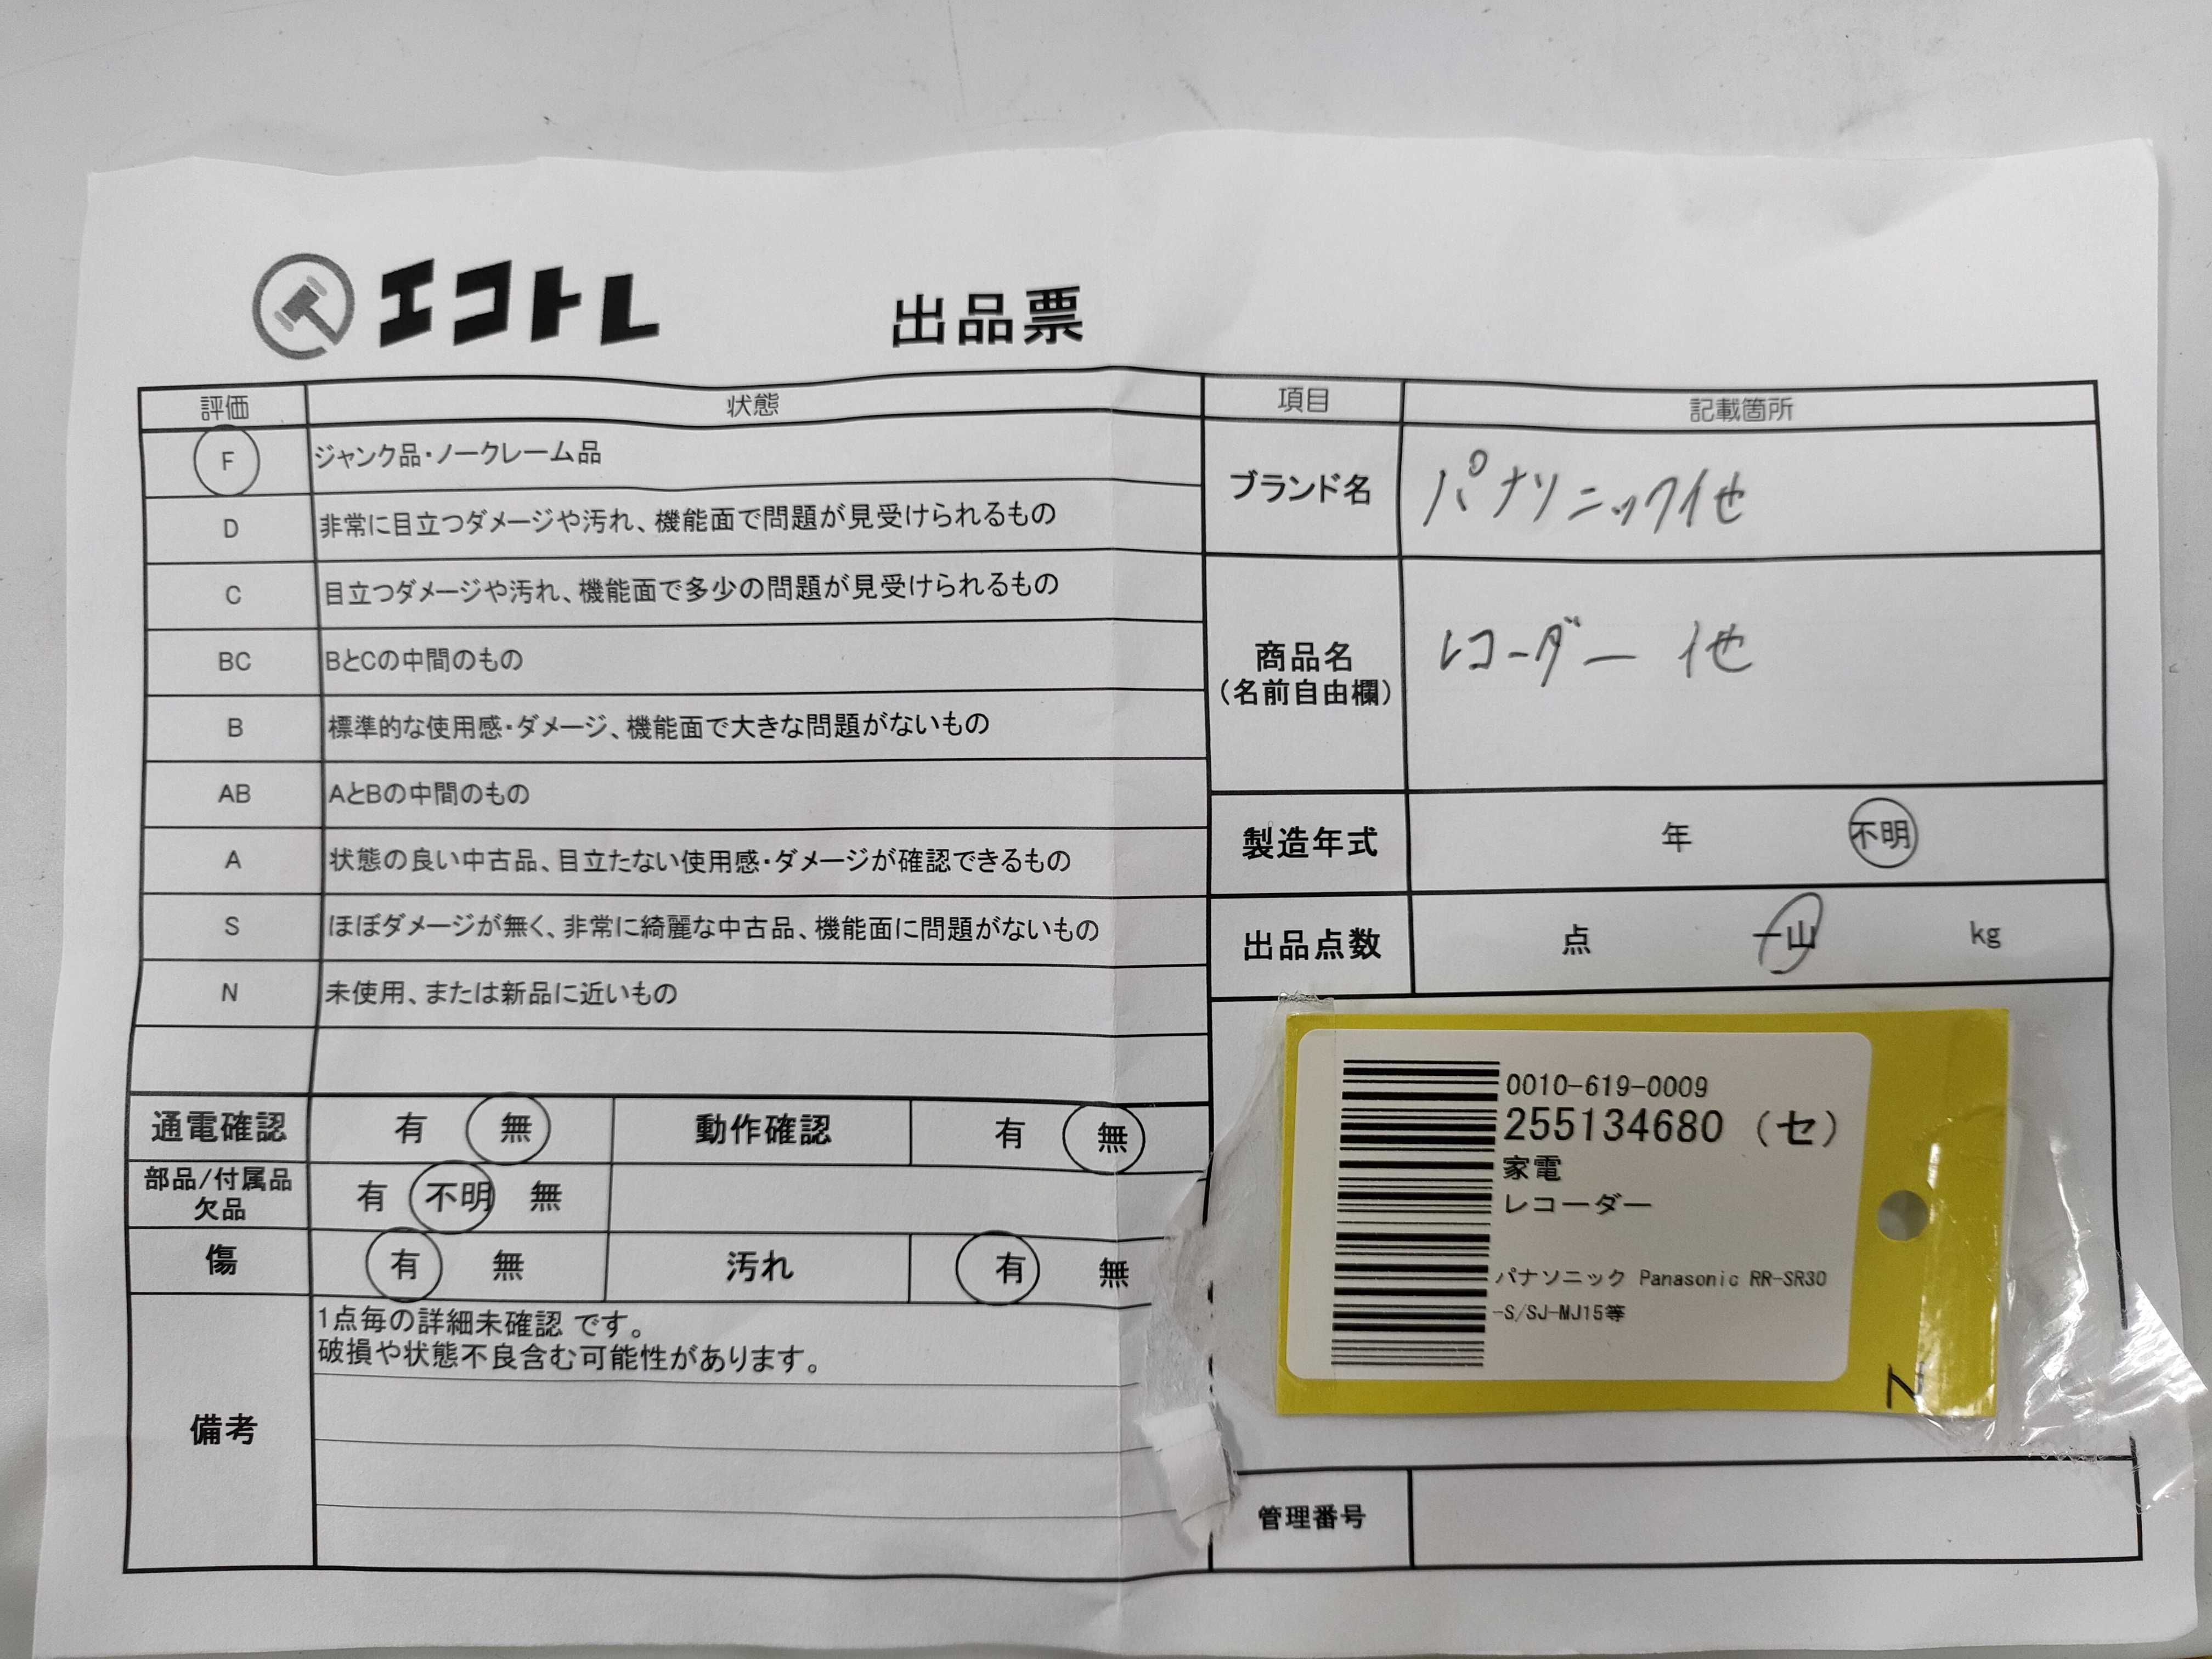 エコトレ 出品票
評価 状態
F ジャンク品・ノークレーム品
D 非常に目立つダメージや汚れ、機能面で問題が見受けられるもの
C 目立つダメージや汚れ、機能面で多少の問題が見受けられるもの
BC BとCの中間のもの
B 標準的な使用感・ダメージ、機能面で大きな問題がないもの
AB AとBの中間のもの
A 状態の良い中古品、目立たない使用感・ダメージが確認できるもの
S ほぼダメージが無く、非常に綺麗な中古品、機能面に問題がないもの
N 未使用、または新品に近いもの
通電確認 有 無 動作確認 有 無
部品/付属品
欠品
有 不明 無
傷 有 無 汚れ 有 無
備考
1点毎の詳細未確認 です。
破損や状態不良含む可能性があります。
項目 記載箇所
ブランド名 パナソニック他
商品名
(名前自由欄)
レコーダー 他
製造年式 年 不明
出品点数 点 一山 kg
0010-619-0009
255134680 (セ)
家電
レコーダー
パナソニック Panasonic RR-SR30
-S/SJ-MJ15等
管理番号